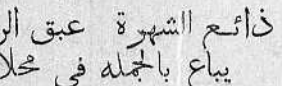 ذائع الشهرة عبق الر
يباع بالجمله في محلا